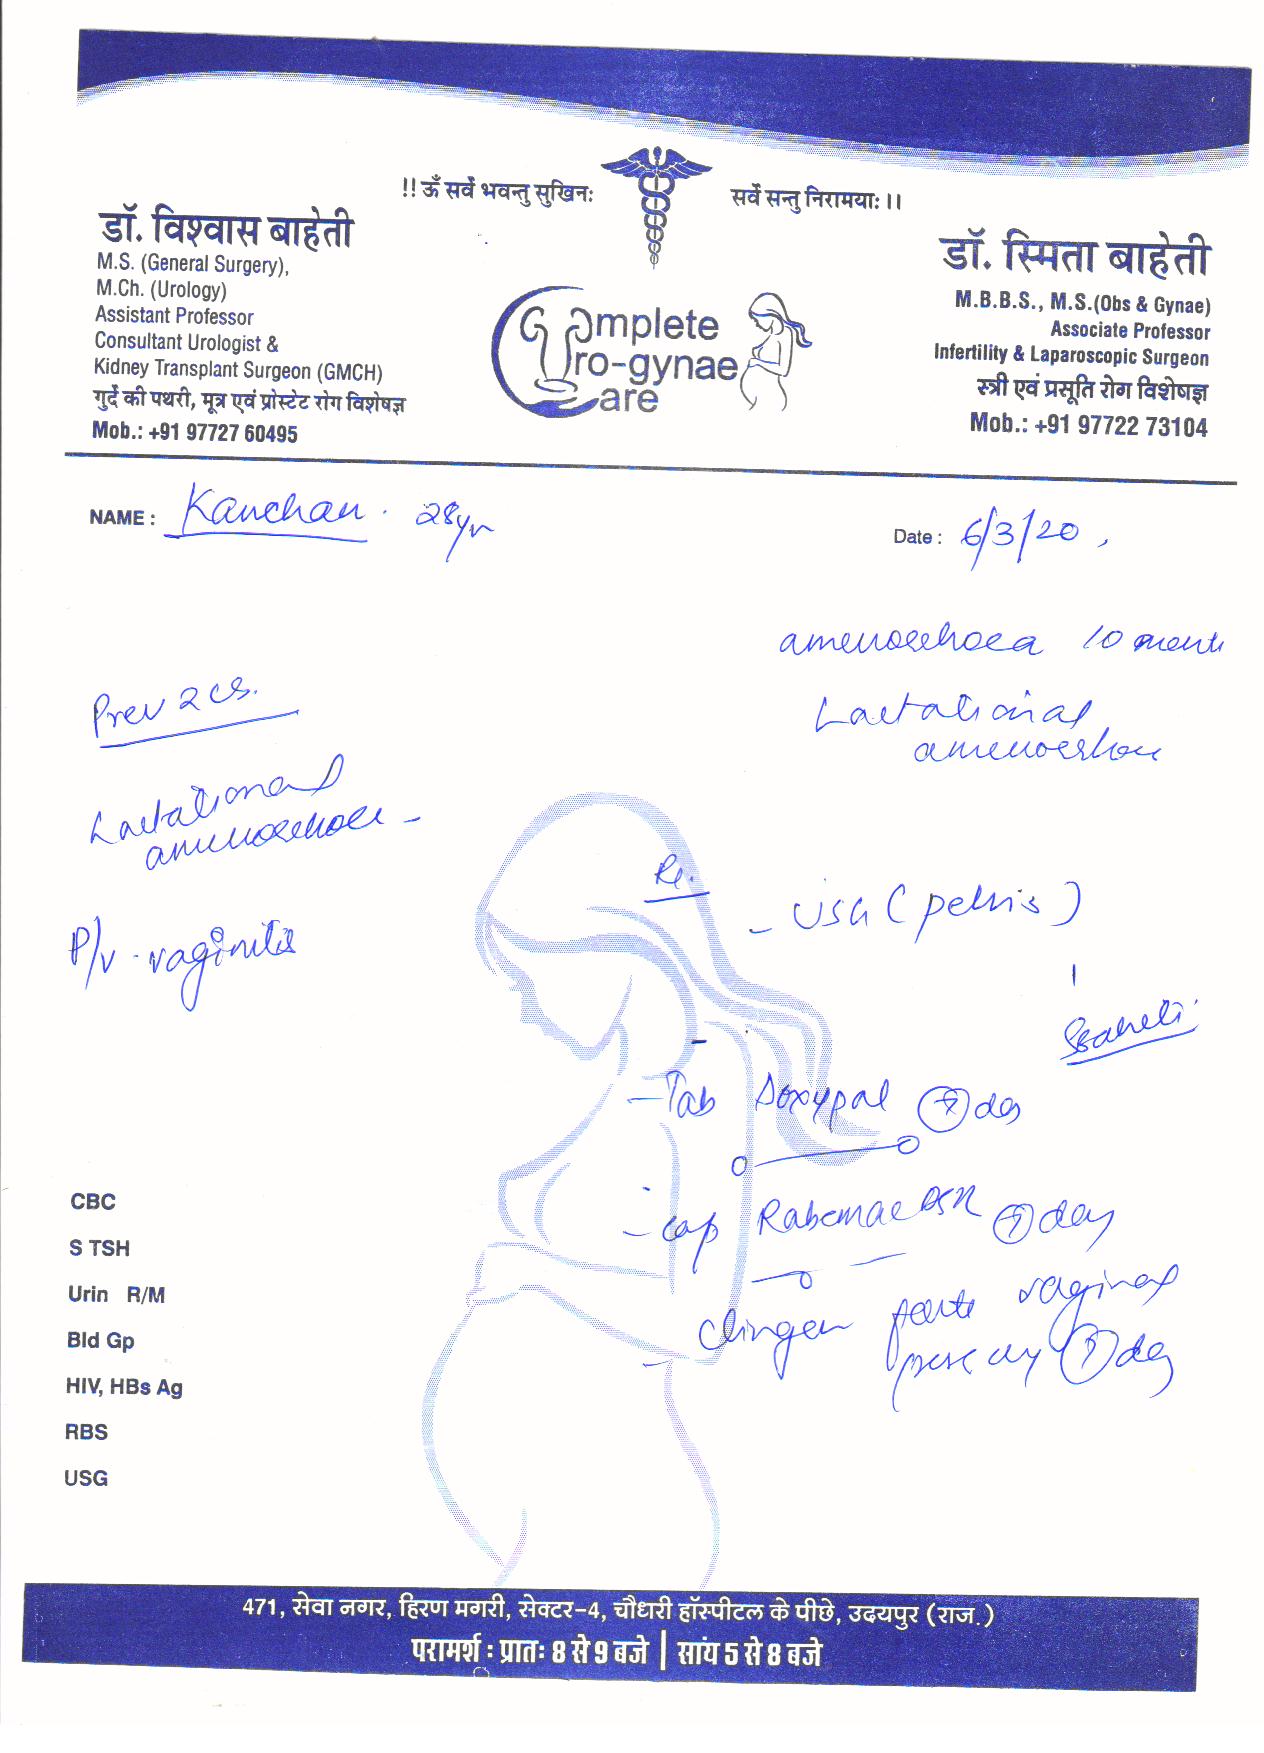 !! ॐ सर्वे भवन्तु सुखिनः
सर्वे सन्तु निरामयाः ।।
डॉ. विश्वास बाहेती
M.S. (General Surgery),
M.Ch. (Urology)
Assistant Professor
Consultant Urologist &
Kidney Transplant Surgeon (GMCH)
गुर्दे की पथरी, मूत्र एवं प्रोस्टेट रोग विशेषज्ञ
Mob.: +91 97727 60495
Complete
Uro-gynae
Care
डॉ. स्मिता बाहेती
M.B.B.S., M.S.(Obs & Gynae)
Associate Professor
Infertility & Laparoscopic Surgeon
स्त्री एवं प्रसूति रोग विशेषज्ञ
Mob.: +91 97722 73104
NAME : Kanchan. 28yr
Date : 6/3/20
amenorrhoea 10 month
Lactational
amenorrhoea
Prev 2 cs.
Lactational
amenorrhoea -
P/v - vaginitis
Rx.
- USG (pelvis)
- Tab Doxypal 7 day
- cap Rabemac DSR 7 day
- Clingen forte vaginal
7 day
CBC
S TSH
Urin R/M
Bld Gp
HIV, HBs Ag
RBS
USG
471, सेवा नगर, हिरण मगरी, सेक्टर-4, चौधरी हॉस्पीटल के पीछे, उदयपुर (राज.)
परामर्श : प्रातः 8 से 9 बजे | सांय 5 से 8 बजे